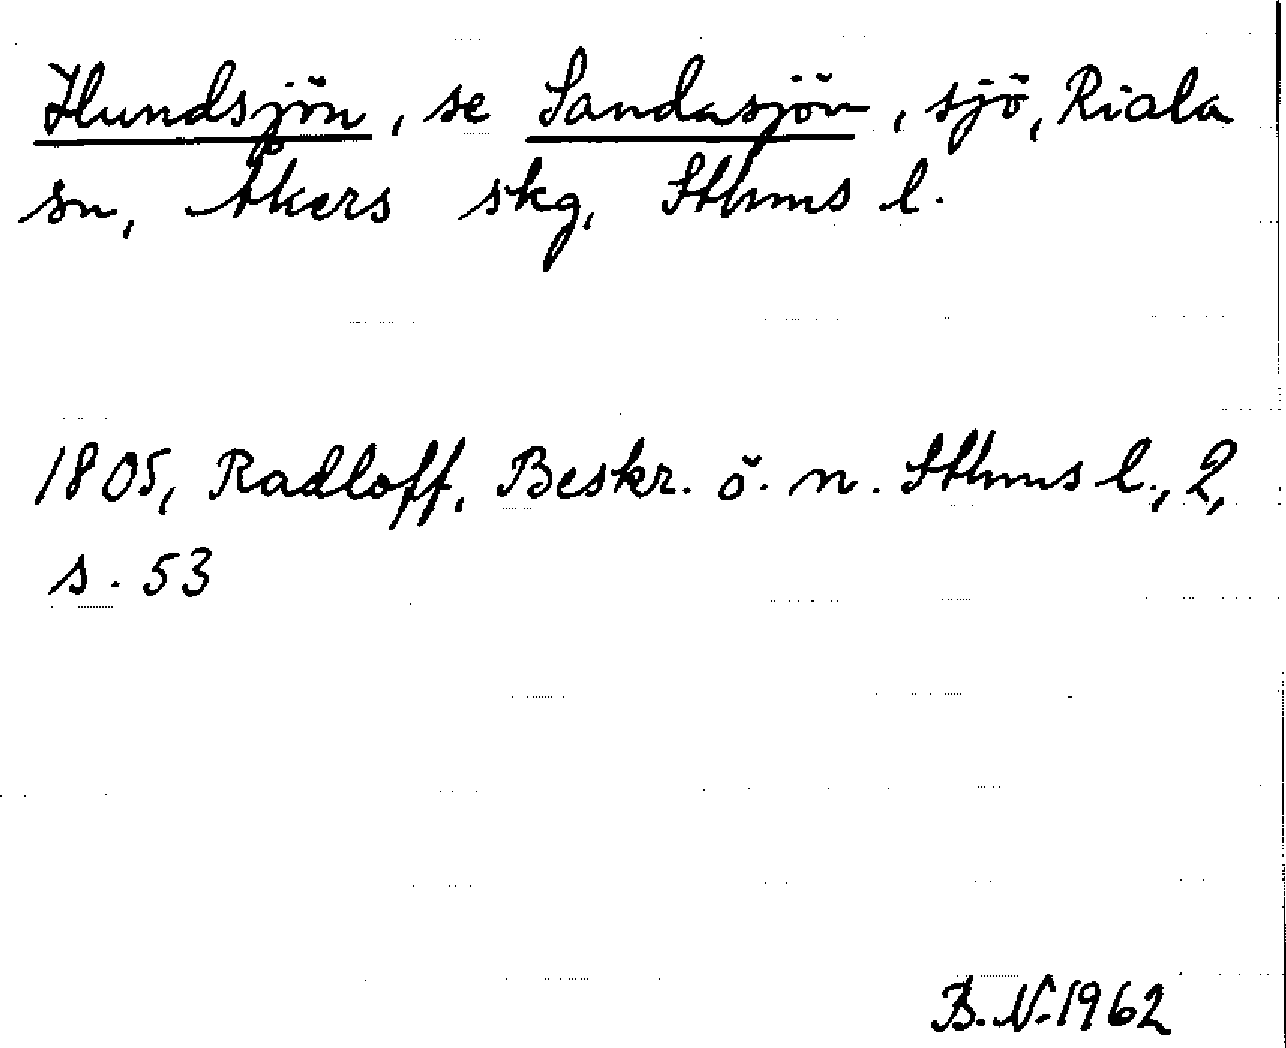 Hundsjön, se Sandasjön, sjö, Riala
sn, Åkers skg, Sthms l.
1805, Radloff, Beskr. ö. n. Sthms l., 2,
s. 53
B.N. 1962